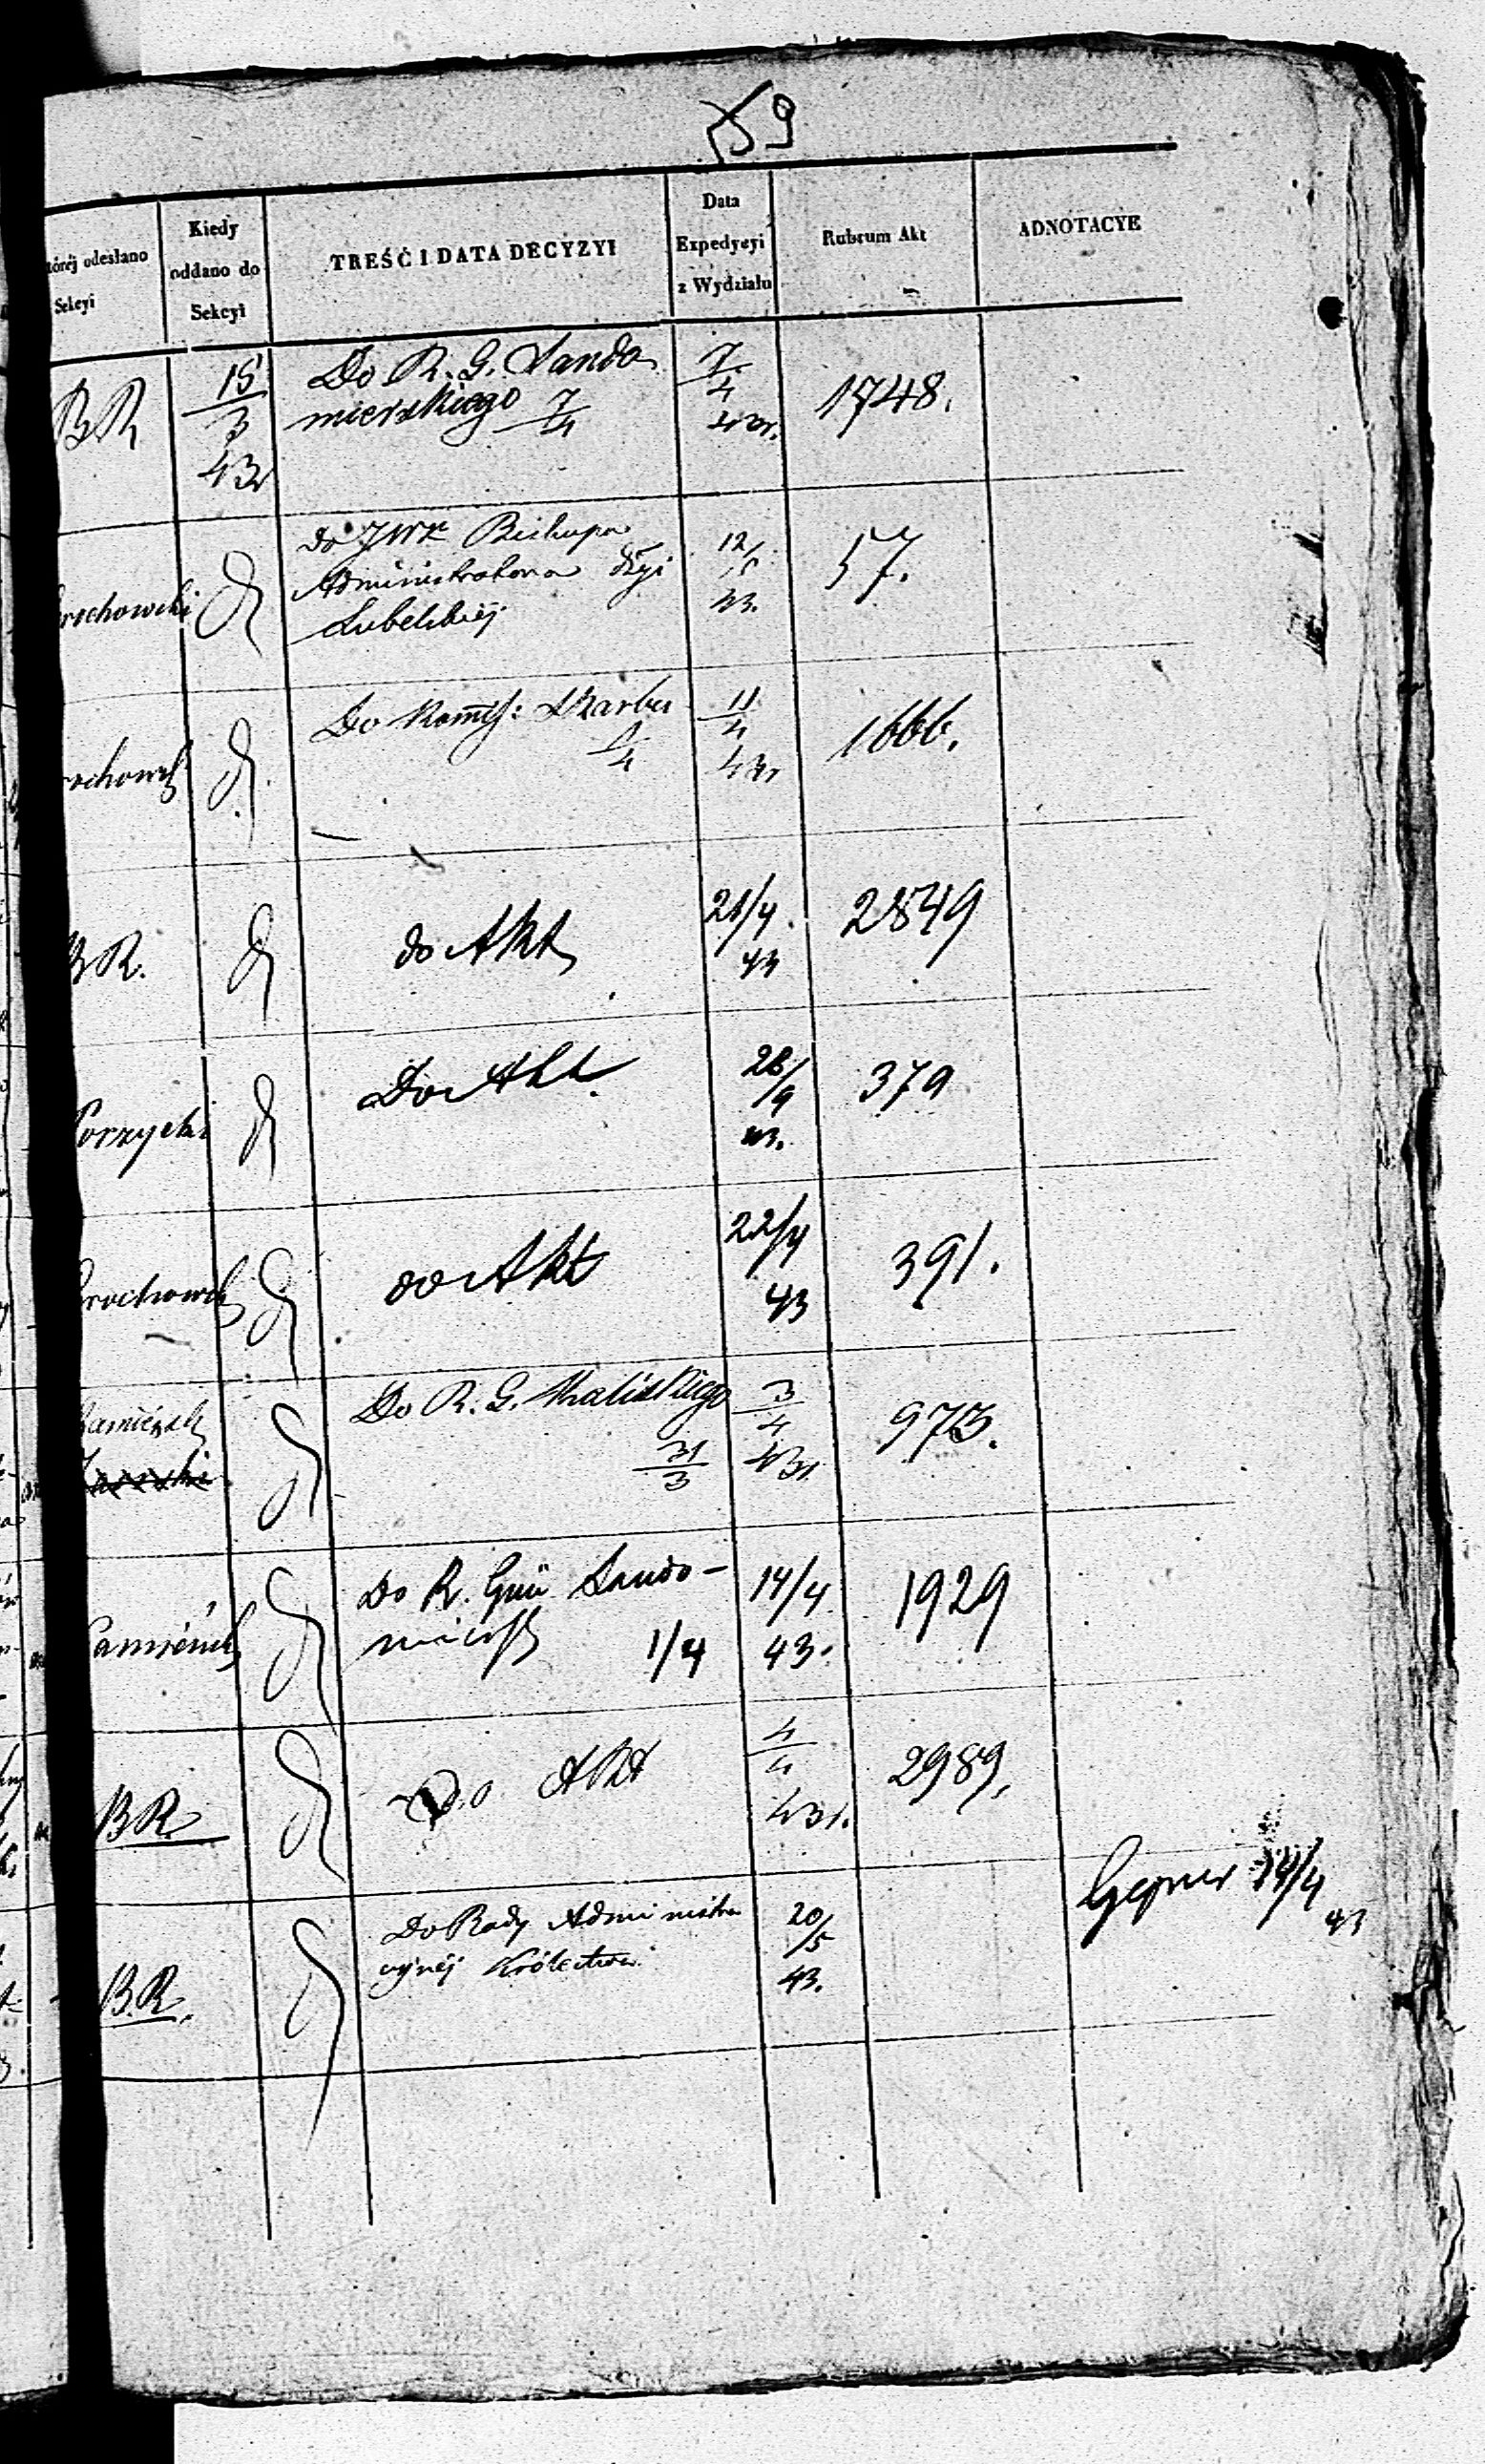 59
której odesłano
Sekcyi
Kiedy
oddano do
Sekcyi
TREŚĆ I DATA DECYZYI
Data
Expedycyi
z Wydziału
Rubrum Akt
ADNOTACYE
BR
15/3
43
Do R. G. Sando
mierskiego 7/4
7/4
43r.
1748.
rochowski
do JWX Biskupa
Administratora dyi
Lubelskiej
12/5
43.
57.
Do Komis: Skarbu
11/4
43r
1666.
BR.
do Akt
21/4
43
2849
Porzycki
Do Akt
28/9
43.
379
do Akt
22/4
43
391.
Do R. G. Kaliskiego
31/3
3/4
43r
973.
Do R. Gnu Sando-
miersk 1/4
14/4
43.
1929
BR.
Do Akt
4/4
43r.
2989.
B.R.
Do Rady Administra
cyjnéj Królestwa
20/5
43.
Gepner 14/4
43